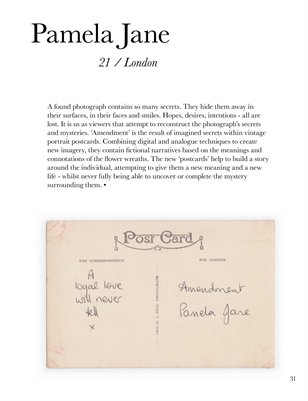 Pamela Jane
21 / London
A found photograph contains so many secrets. They hide them away in
their surfaces, in their faces and smiles. Hopes, desires, intentions - all are
lost. It is us as viewers that attempt to reconstruct the photograph's secrets
and mysteries. 'Amendment' is the result of imagined secrets within vintage
portrait postcards. Combining digital and analogue techniques to create
new imagery, they contain fictional narratives based on the meanings and
connotations of the flower wreaths. The new 'postcards' help to build a story
around the individual, attempting to give them a new meaning and a new
life - whilst never fully being able to uncover or complete the mystery
surrounding them. •
Post Card
FOR CORRESPONDENCE
FOR ADDRESS
A
loyal love
will never
tell
x
THIS IS A REAL PHOTOGRAPH
Amendment
Pamela Jane
31